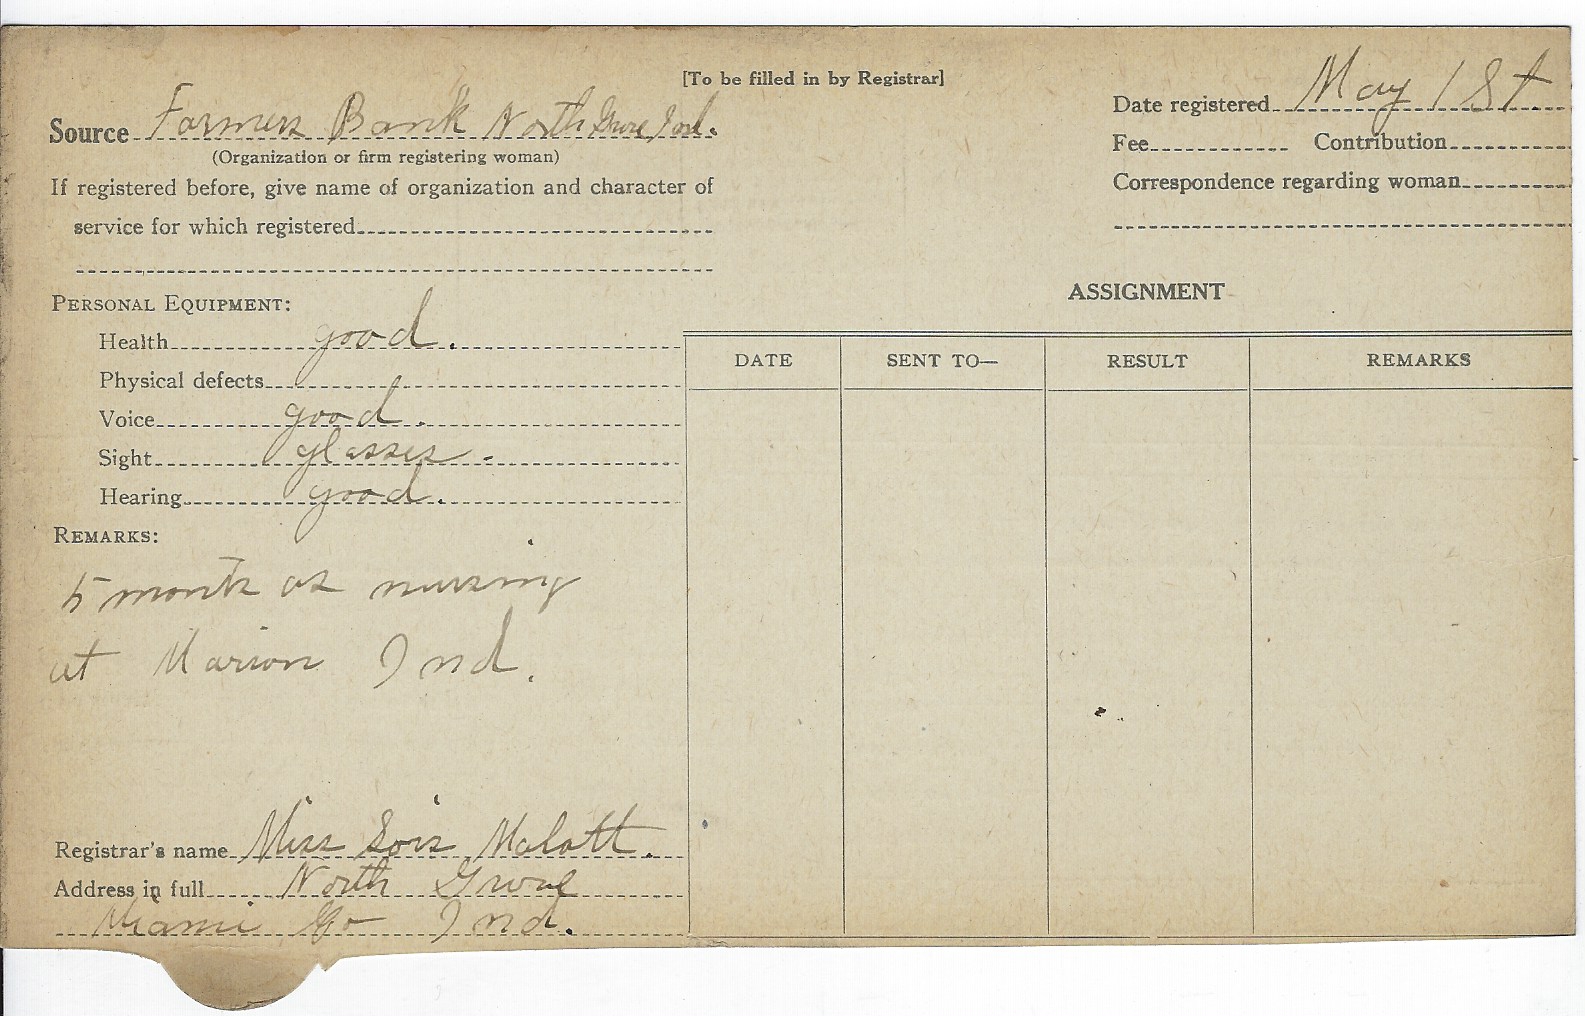 [To be filled in by Registrar]
Source Farmers Bank North Grove Ind.
(Organization or firm registering woman)
If registered before, give name of organization and character of
service for which registered
Date registered May 1st.
Fee Contribution
Correspondence regarding woman
PERSONAL EQUIPMENT:
Health good.
Physical defects
Voice good.
Sight glasses.
Hearing good.
REMARKS:
5 months as nursing
at Marion Ind.
Registrar's name Miss Lois Malott.
Address in full North Grove
Miami Co Ind.
ASSIGNMENT
DATE SENT TO— RESULT REMARKS